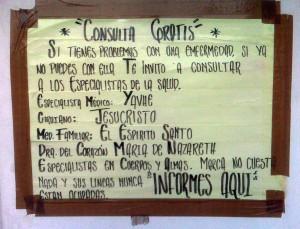 "Consulta Gratis"
Si tienes problemas con una enfermedad, si ya
no puedes con ella Te Invito a consultar
a los Especialistas de la salud.
Especialista Médico: Yavhe
Cirujano: Jesucristo
Med. Familiar: El Espiritu Santo
Dra. del Corazón María de Nazareth
Especialistas en Cuerpos y Almas. Marca no cuesta
nada y sus lineas nunca "INFORMES AQUI"
estan ocupadas.